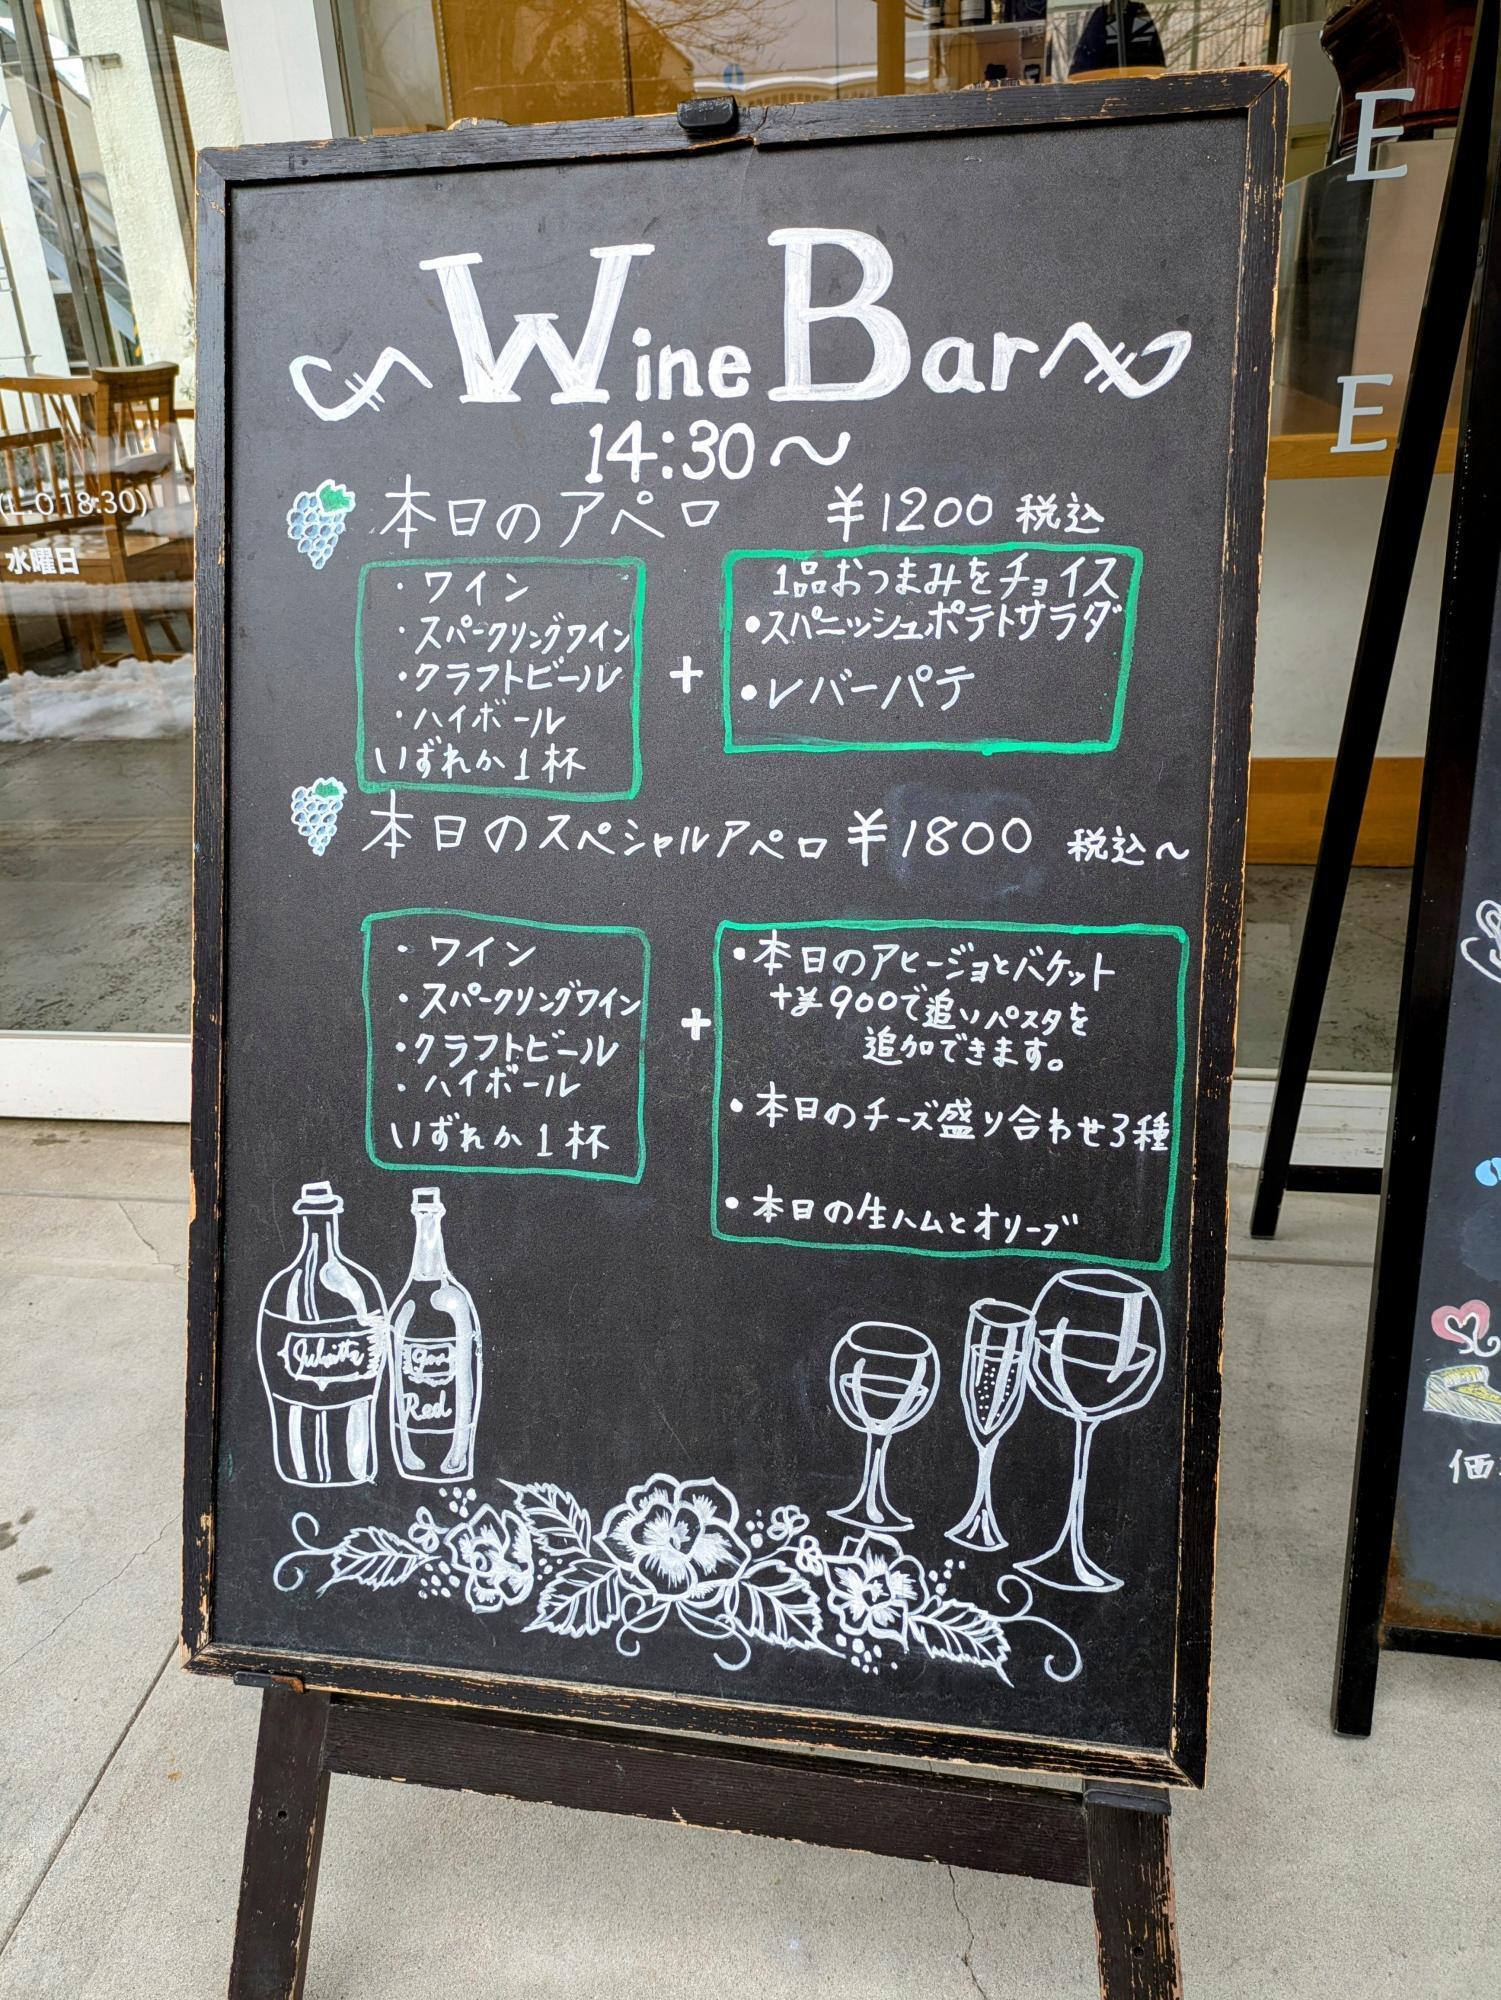 Wine Bar
14:30～
本日のアペロ ¥1200 税込
・ワイン
・スパークリングワイン
・クラフトビール
・ハイボール
いずれか1杯
+
1品おつまみをチョイス
・スパニッシュポテトサラダ
・レバーパテ
本日のスペシャルアペロ ¥1800 税込～
・ワイン
・スパークリングワイン
・クラフトビール
・ハイボール
いずれか1杯
+
・本日のアヒージョとバケット
+¥900で追いパスタを
追加できます。
・本日のチーズ盛り合わせ3種
・本日の生ハムとオリーブ
Red
(L.O 18:30)
水曜日
E
E